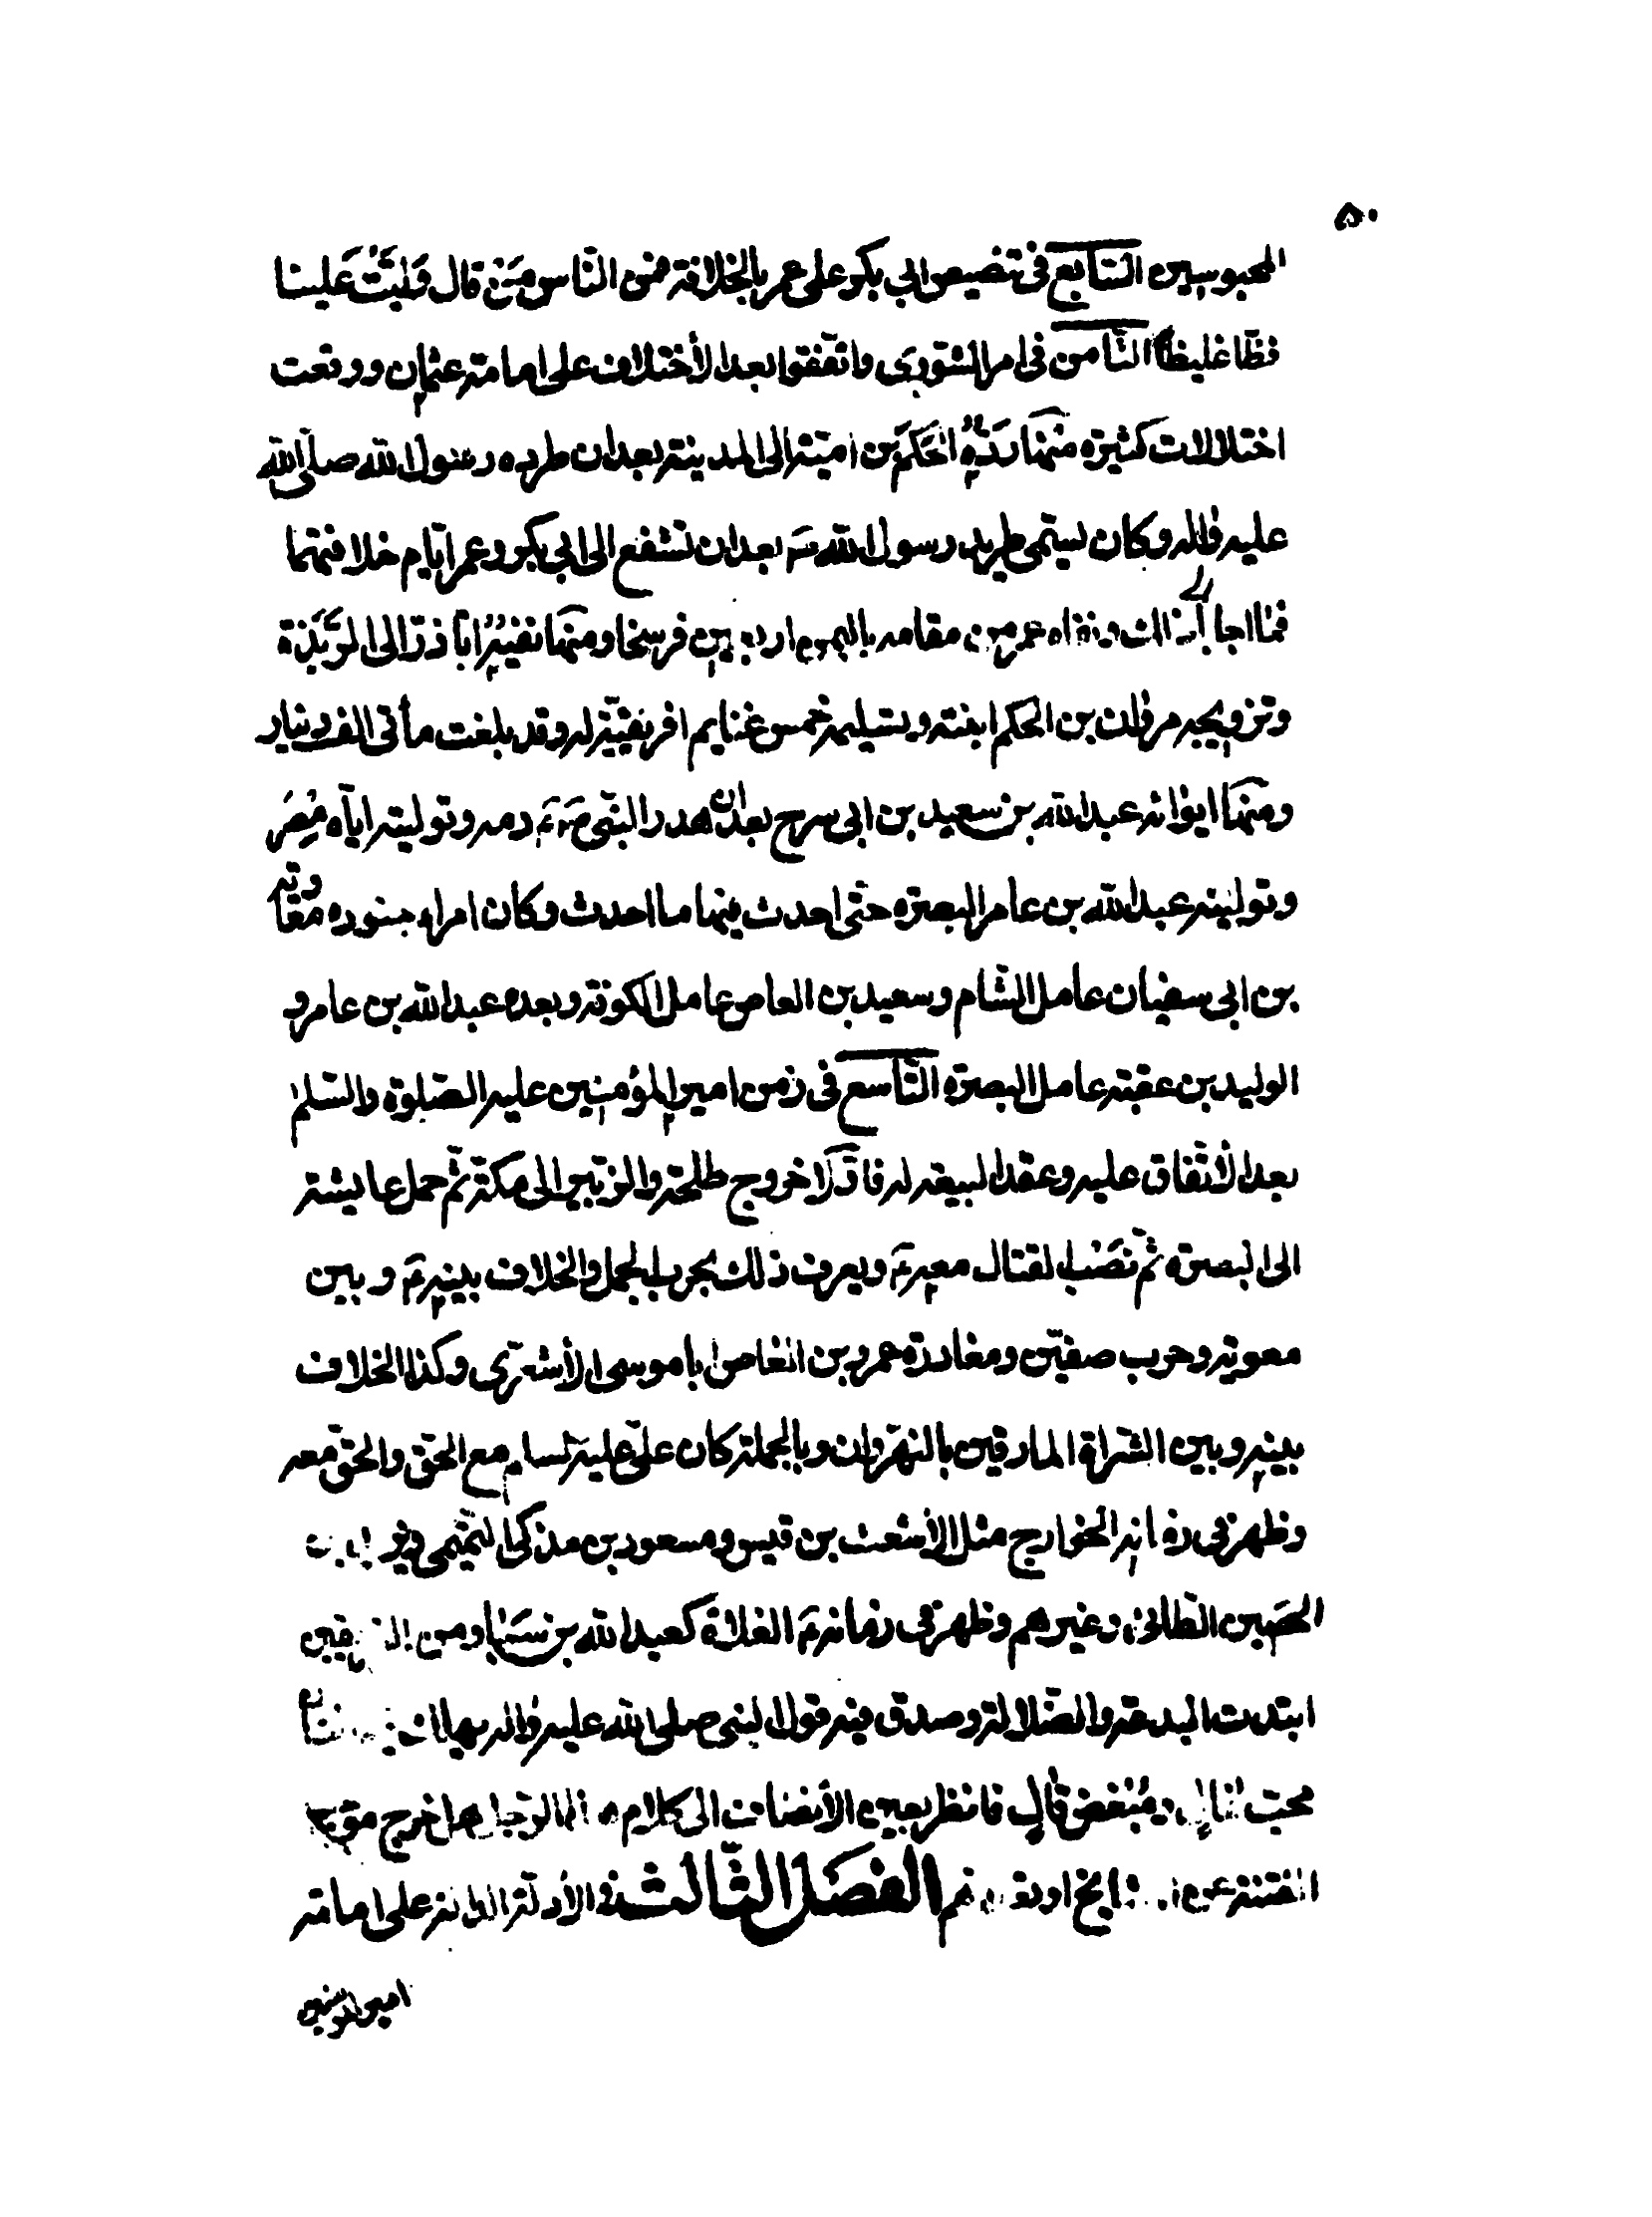 ۵۰
المحبوسین السّابع فی تنصیص ابی بکر علی عمر بالخلافة فمن النّاس مَن قال وَلَّیتَ عَلینا
فظّا غلیظاً الثّامن فی امر الشّوری واتّفقوا بعد الأختلاف علی امامة عثمان ووقعت
اختلالات کثیرة منها رَدُّهُ الحَکَم بن امیّة الی المدینة بعد ان طرده رسول الله صلّی الله
علیه وآله وکان یسمّی طرید رسول الله ص بعد ان تشفع الی ابی بکر وعمر ایّام خلافتهما
فما اجابا الی ذلک ونفاه عمر من مقامه بالیمن اربعین فرسخا ومنها نفیُهُ اباذرّ الی الرَّبَذة
وتزویجه مروان بن الحکم ابنته وتسلیمه خمس غنایم افریقیّة له وقد بلغت مأتی الف دینار
ومنها ایوائه عبد الله بن سعید بن ابی سرح بعد ان هدر النّبی ص دمه وتولیته ایّاه مِصرَ
وتولیته عبد الله بن عامر البصرة حتّی احدث فیها ما احدث وکان امراء جنوده معاویة
بن ابی سفیان عامل الشّام وسعید بن العاص عامل الکوفة وبعده عبد الله بن عامر و
الولید بن عقبة عامل البصرة التّاسع فی زمن امیر المؤمنین علیه الصّلوة والسّلم
بعد الأتّفاق علیه وعقد البیعة له فاوّلا خروج طلحة والزّبیر الی مکّة ثمّ حمل عایشة
الی البصرة ثمّ نَصَب لقتال معه ع ویعرف ذلک بحرب الجمل والخلاف بینه ع وبین
معویة وحرب صفّین ومغادرة عمرو بن العاص ابا موسی الأشعری وکذا الخلاف
بینه وبین الشّراة المارقین بالنهروان وبالجملة کان علیّ علیه السلام مع الحقّ والحقّ معه
وظهر فی زمانه الخوارج مثل الأشعث بن قیس ومسعود بن مذکی التّمیمی وزید بن
الحصین الطّائی وغیرهم وظهر فی زمانه ع الغلاة کعبد الله بن سَبَا ومن الفریقین
ابتدت البدعة والضّلالة وصدق فیه قول النبی صلی الله علیه وآله یهلک فیک اثنان
محبّ غال ومُبغض قالٍ فانظر بعین الأنصاف الی کلام هذا الرّجل هل خرج موجب
الفتنة عن المشایخ او نعم الفصل الثّالث فی الأدلّة الدالّة علی امامة
امیر المؤمنین